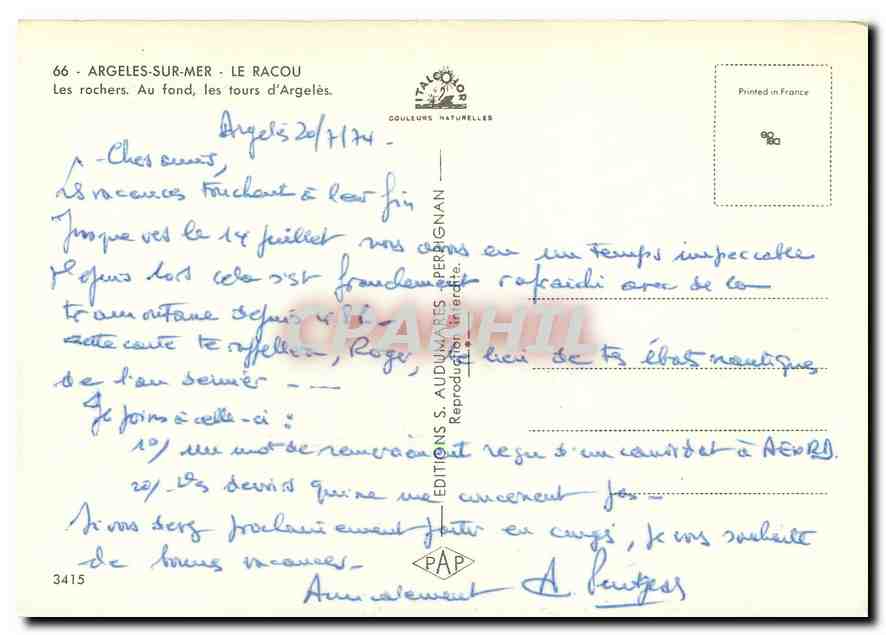 66 - ARGELES-SUR-MER - LE RACOU
Les rochers. Au fond, les tours d'Argelès.
ITALCOLOR
COULEURS NATURELLES
Printed in France
Argelès 20/7/74 -
- Chers amis,
Les vacances touchent à leur fin
Jusque vers le 14 juillet nous avons eu un temps impeccable
depuis lors cela s'est franchement rafraichi avec de la
tramontane depuis
cette carte te rappellera, Roger, le lieu de tes ébats nautiques
de l'an dernier - - -
Je joins à celle-ci :
1°/ un mot de remerciement reçu d'un candidat à
2°/ - Des devoirs qui ne me concernent pas -
Si vous devez prochainement partir en congé, je vous souhaite
de bonnes vacances -
Amicalement A.
EDITIONS S. AUDUMARES - PERPIGNAN
Reproduction interdite.
CPAPHIL
PAP
3415